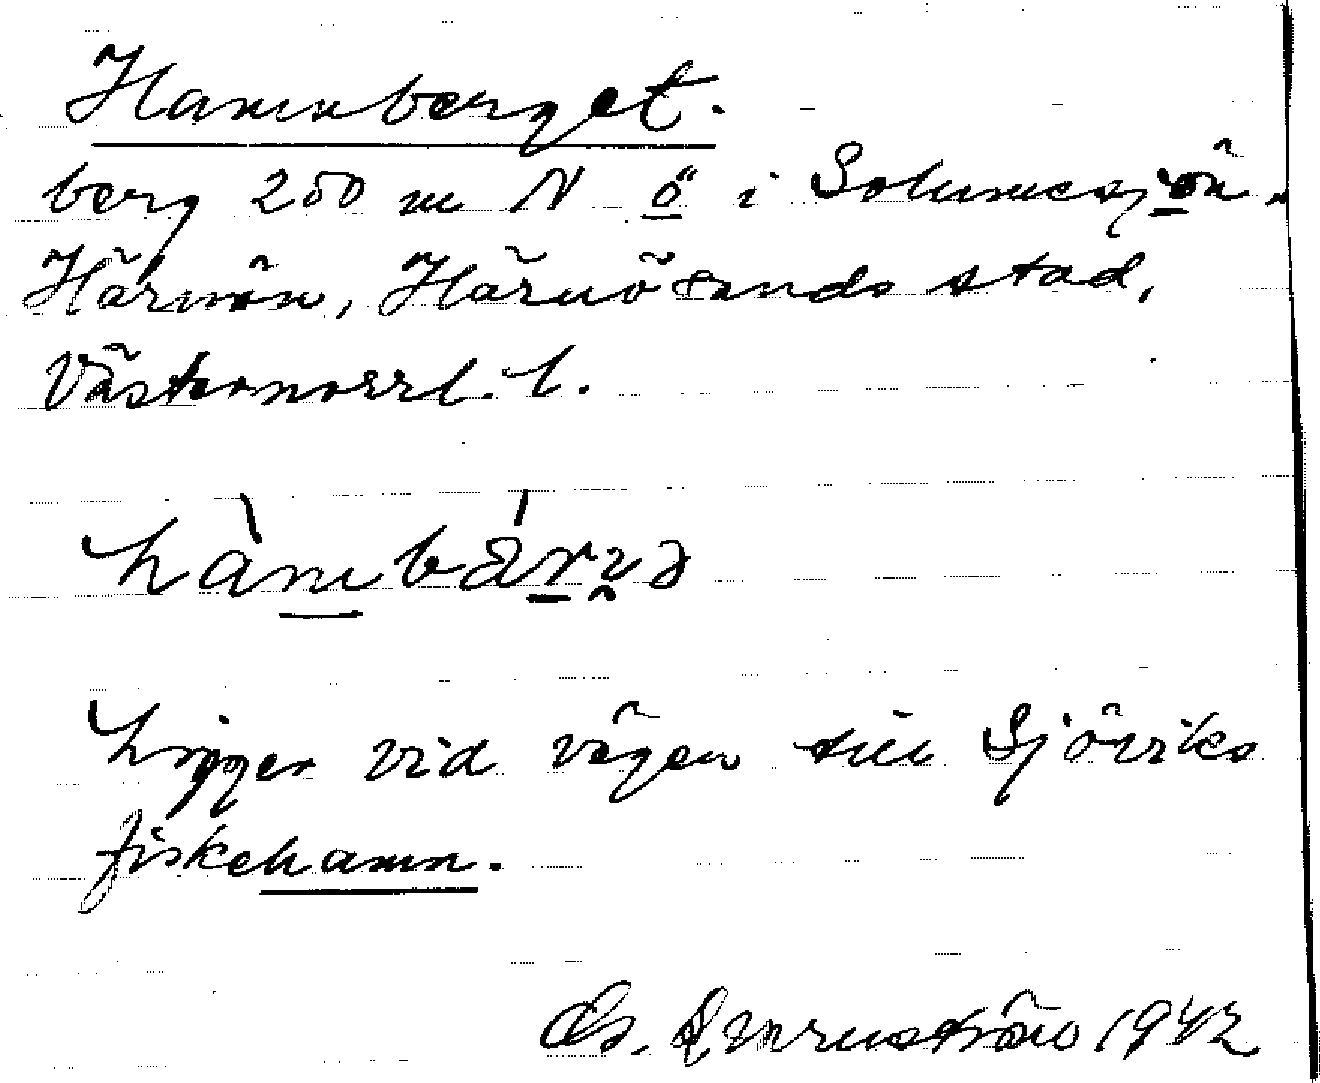 Hamnberget.
berg 250 m N ö i Solumsjön.
Härnön, Härnösands stad,
Västernorrl. l.
hàmbár
Ligger vid vägen till Sjöviks
fiskehamn.
1942